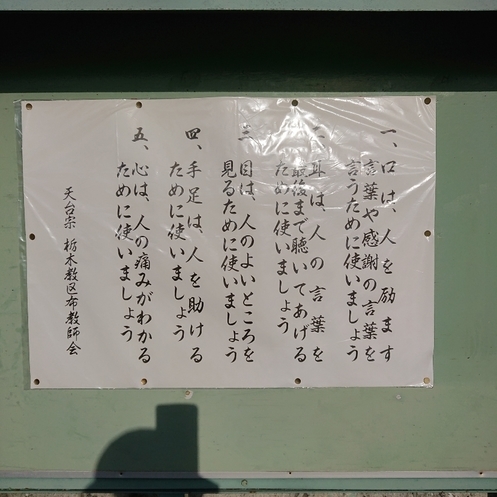 一、口は、人を励ます
言葉や感謝の言葉を
言うために使いましょう
二、耳は、人の言葉を
最後まで聴いてあげる
ために使いましょう
三、目は、人のよいところを
見るために使いましょう
四、手足は、人を助ける
ために使いましょう
五、心は、人の痛みがわかる
ために使いましょう
天台宗 栃木教区布教師会